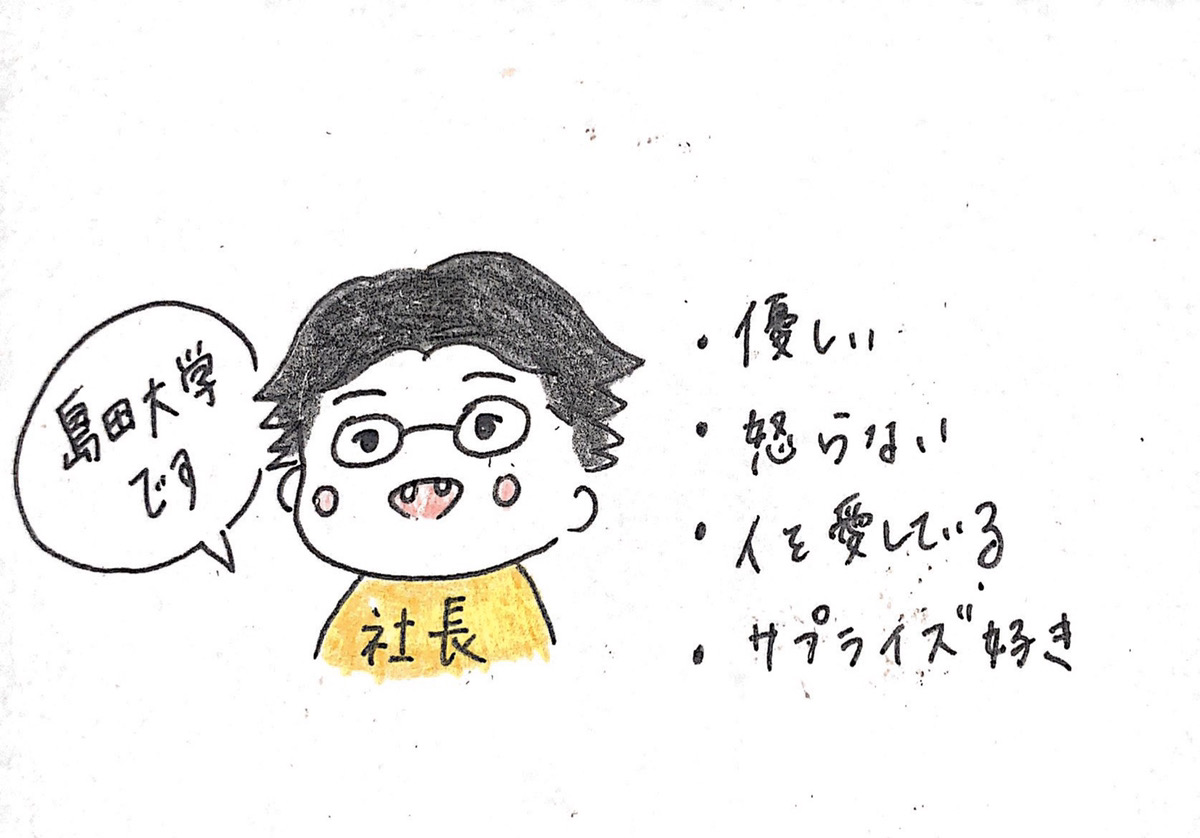 島田大学
です
社長
・優しい
・怒らない
・人を愛している
・サプライズ好き